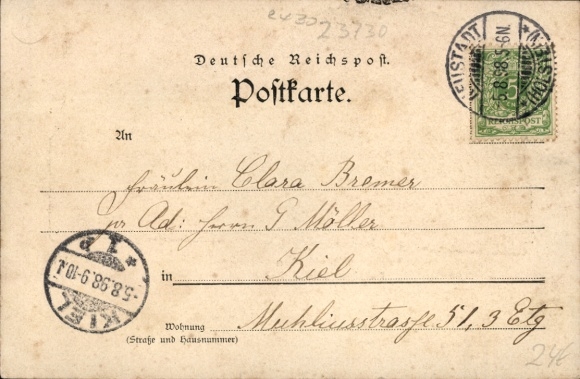 23730
Deutsche Reichspost.
Postkarte.
NEUSTADT
(HOLSTEIN)
5.8.98.5-6N.
5
REICHSPOST
An
Fräulein Clara Bremer
pr Ad: Herrn G Möller
in Kiel
KIEL
1 P
-5.8.98.9-10.
Wohnung Muhliusstrasse 51, 3 Etg
(Straße und Hausnummer)